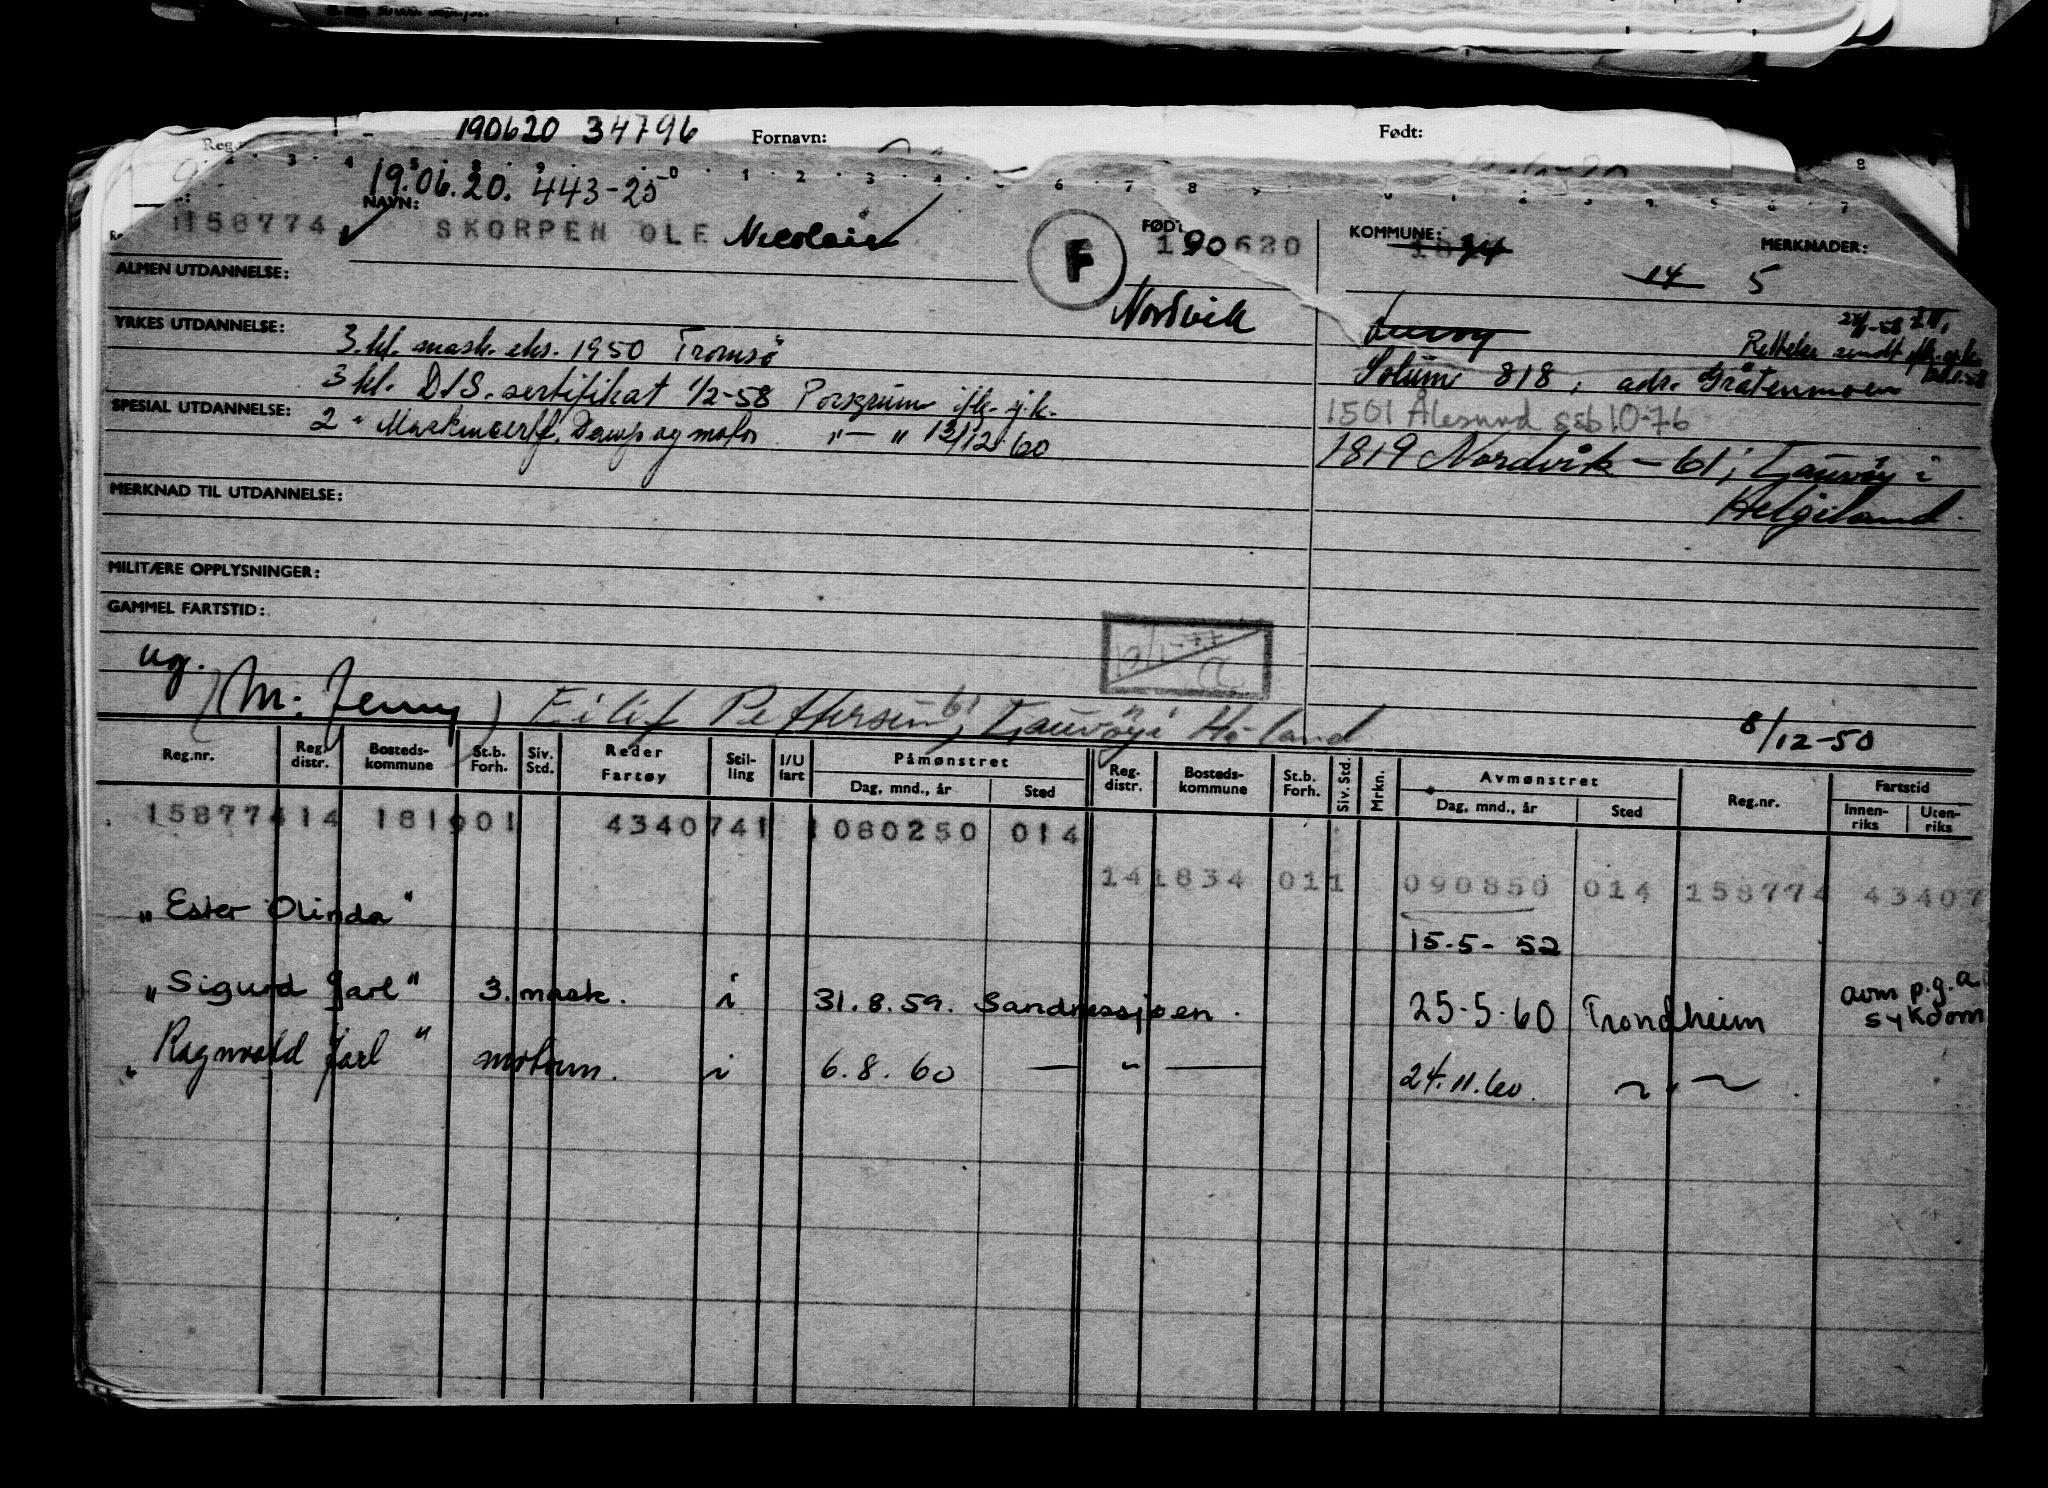 190620 34796 Fornavn: Født:
19.06.20. 443-25
158774 NAVN: SKORPEN OLE Nicolai FØDT 190620 KOMMUNE: MERKNADER:
F
14 5
ALMEN UTDANNELSE:
Nordvik
YRKES UTDANNELSE: 3.kl. mask. eks. 1950 Tromsö
Rettelse sendt
3 kl. D/S. sertifikat 1/2-58 Porsgrunn
Solum 818, adr. Gråtenmoen
SPESIAL UTDANNELSE: 2 " og motor " — " 12/12-60
1501 Ålesund 10-76
1819 Nordvik - 61, i
Helgeland.
MERKNAD TIL UTDANNELSE:
MILITÆRE OPPLYSNINGER:
GAMMEL FARTSTID:
ug.
(M: Jenny) Eilif Pettersen
8/12-50
Reg.nr. Reg. distr. Bosteds- kommune St.b. Forh. Siv. Std. Reder Fartøy Stil- ling I/U fart Påmønstret Dag, mnd., år Sted Reg. distr. Bosteds- kommune St.b. Forh. Siv. Std. Mrkn. Avmønstret Dag, mnd., år Sted Reg.nr. Fartstid Innen- riks Uten- riks
158774 14 181901 4340741 1080250 014
141834 011 090850 014 158774 43407
"Ester Olinda"
15.5- 52
"Sigurd Jarl" 3. mask. i 31.8.59. Sandnessjoen. 25-5-60 Trondheim avm p.g.a sykdom
"Ragnvald Jarl" motorm. i 6.8.60 — " — 24.11.60. ~ " ~